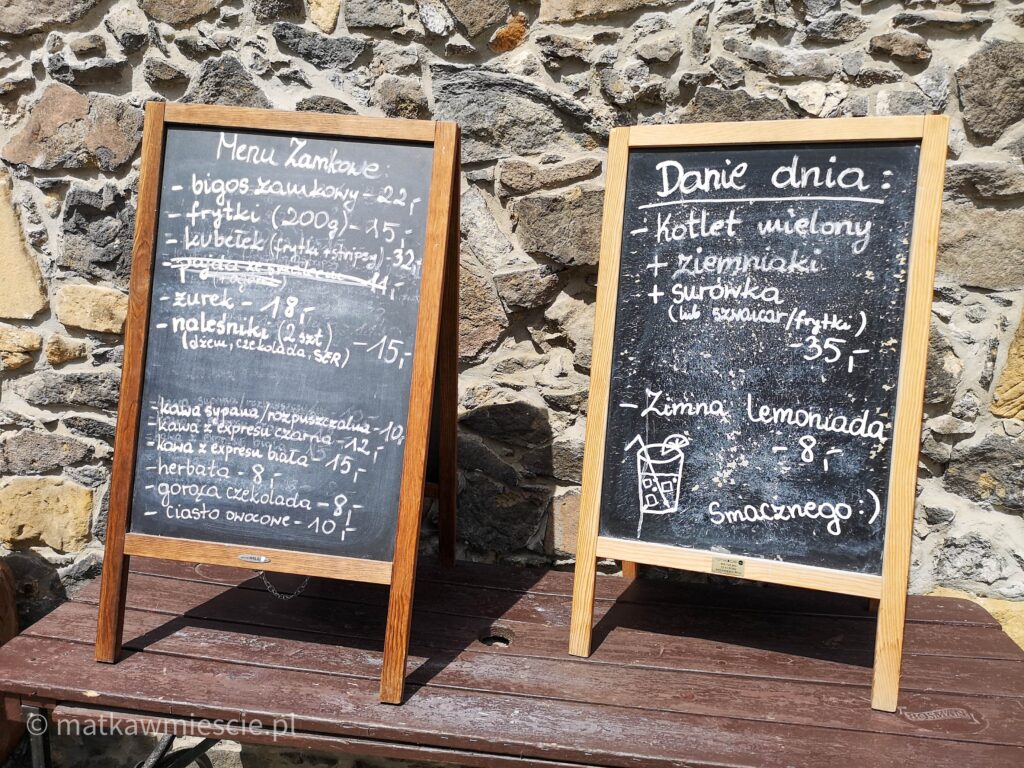 Menu Zamkowe:
- bigos zamkowy - 22,-
- frytki (200g) - 15,-
- kubełek (frytki + stripsy) - 32,-
14,-
- żurek - 18,-
- naleśniki (2 szt) - 15,-
(dżem, czekolada, SER)
- kawa sypana/rozpuszczalna - 10,-
- kawa z expresu czarna - 12,-
- kawa z expresu biała - 15,-
- herbata - 8,-
- gorąca czekolada - 8,-
- ciasto owocowe - 10,-
Danie dnia:
- Kotlet mielony
+ ziemniaki
+ surówka
(lub szwajcar/frytki)
- 35,-
- Zimna lemoniada
- 8,-
Smacznego :)
© matkawmiescie.pl